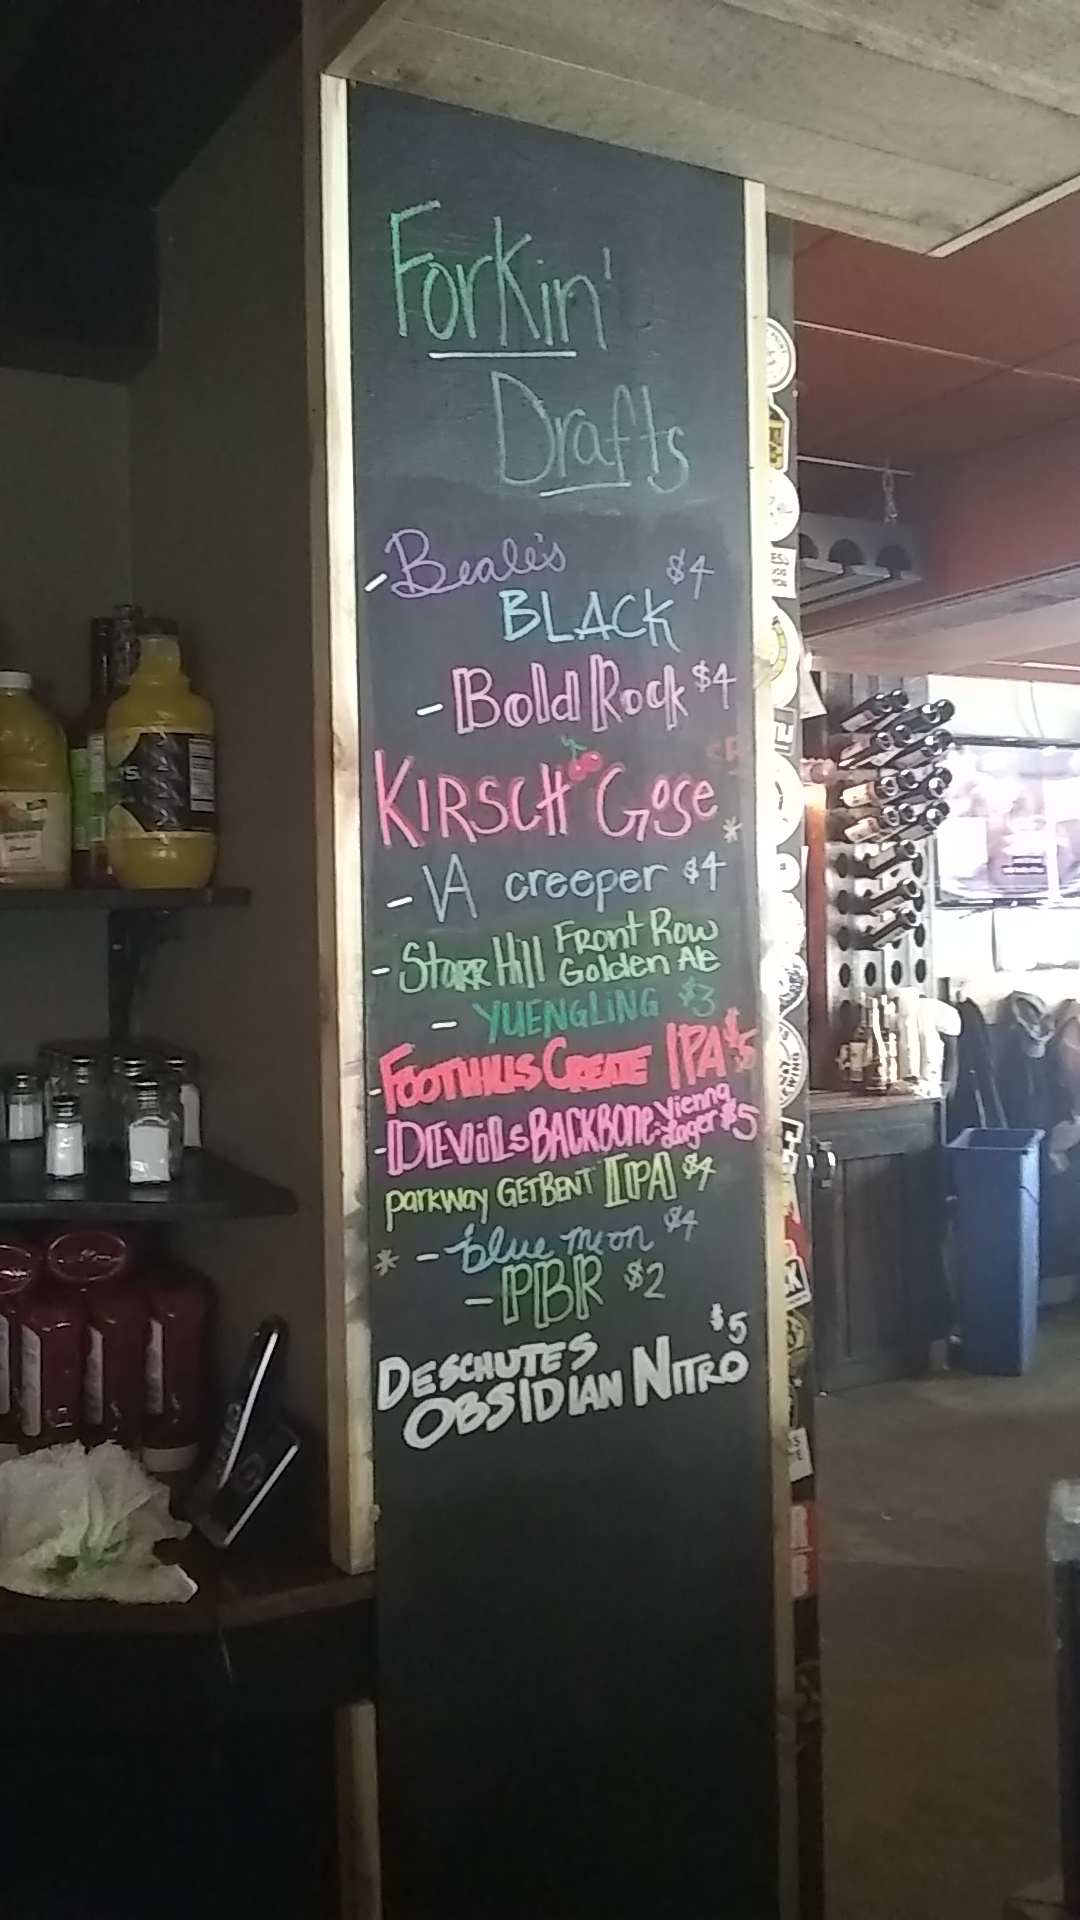 Forkin'
Drafts
- Beale's $4
BLACK
- Bold Rock $4
KIRSCH Gose $5
*
- VA creeper $4
- Starr Hill Front Row
Golden Ale
- YUENGLING $3
- FOOTHILLS CREATE IPA $5
- DEVILS BACKBONE: Vienna
Lager $5
parkway GETBENT IPA $4
* - blue moon $4
- PBR $2
DESCHUTES $5
OBSIDIAN NITRO